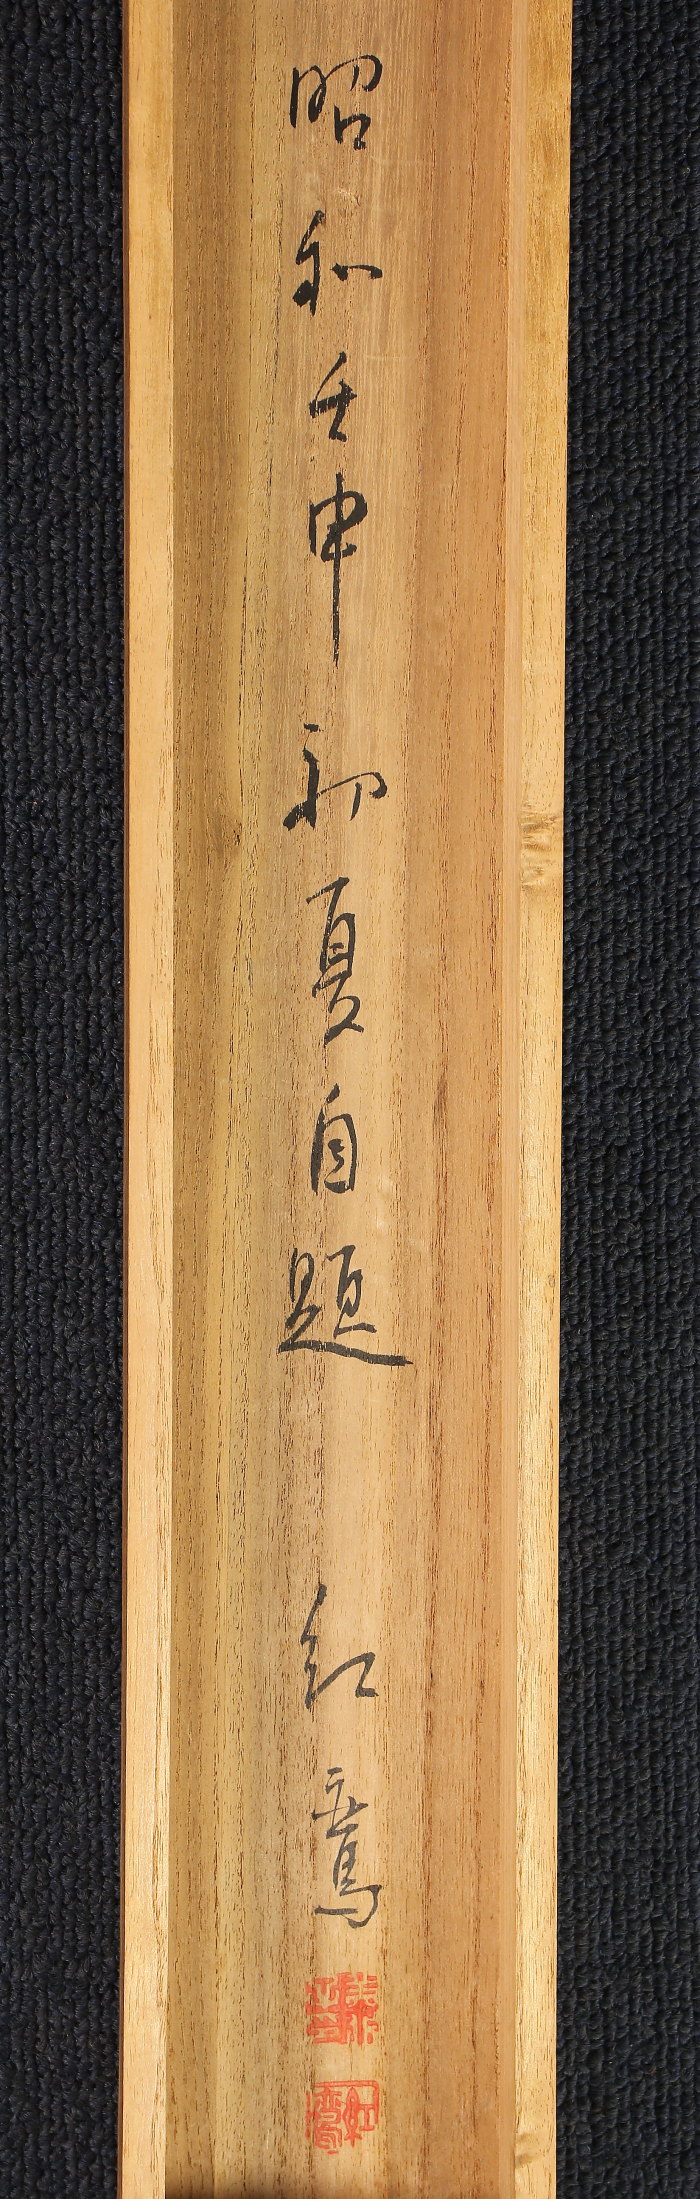 昭和壬申初夏自題 紅鸞